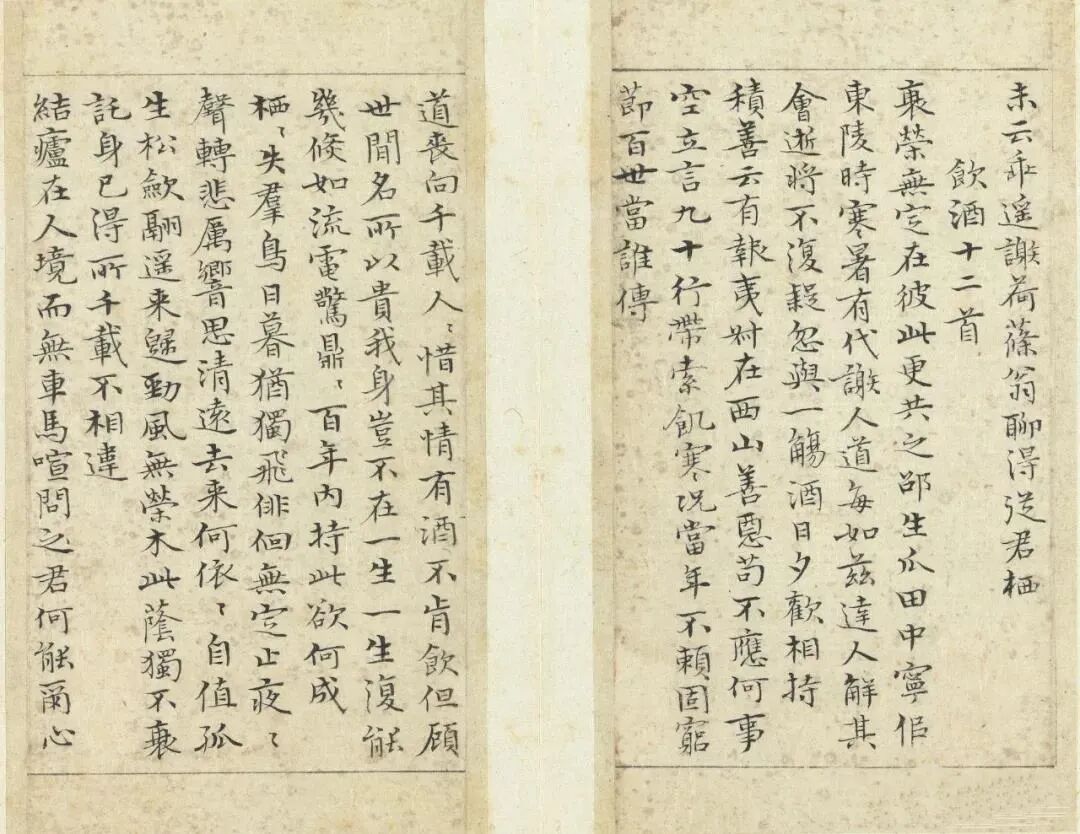 未云乖遥謝荷蓧翁聊得從君栖
飲酒十二首
衰榮無定在彼此更共之邵生瓜田中寧佀
東陵時寒暑有代謝人道每如茲達人解其
會逝將不復疑忽與一觴酒日夕歡相持
積善云有報夷尗在西山善惡苟不應何事
空立言九十行帶索飢寒況當年不賴固窮
節百世當誰傳
道喪向千載人〻惜其情有酒不肯飲但顧
世間名所以貴我身豈不在一生一生復能
幾候如流電驚鼎〻百年內持此欲何成
栖〻失羣鳥日暮猶獨飛徘徊無定止夜〻
聲轉悲厲響思清遠去来何依〻自值孤
生松歛翮遥来歸勁風無榮木此蔭獨不衰
託身已得所千載不相違
結廬在人境而無車馬喧問之君何能爾心